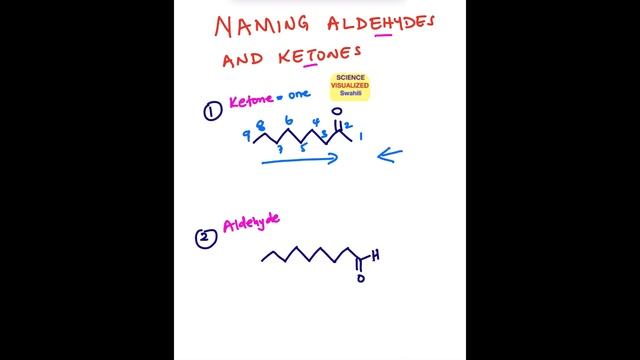 NAMING ALDEHYDES
AND KETONES
SCIENCE
VISUALIZED
Swahili
1 Ketone - one
O
9 8 7 6 5 4 3 2 1
2 Aldehyde
H
O